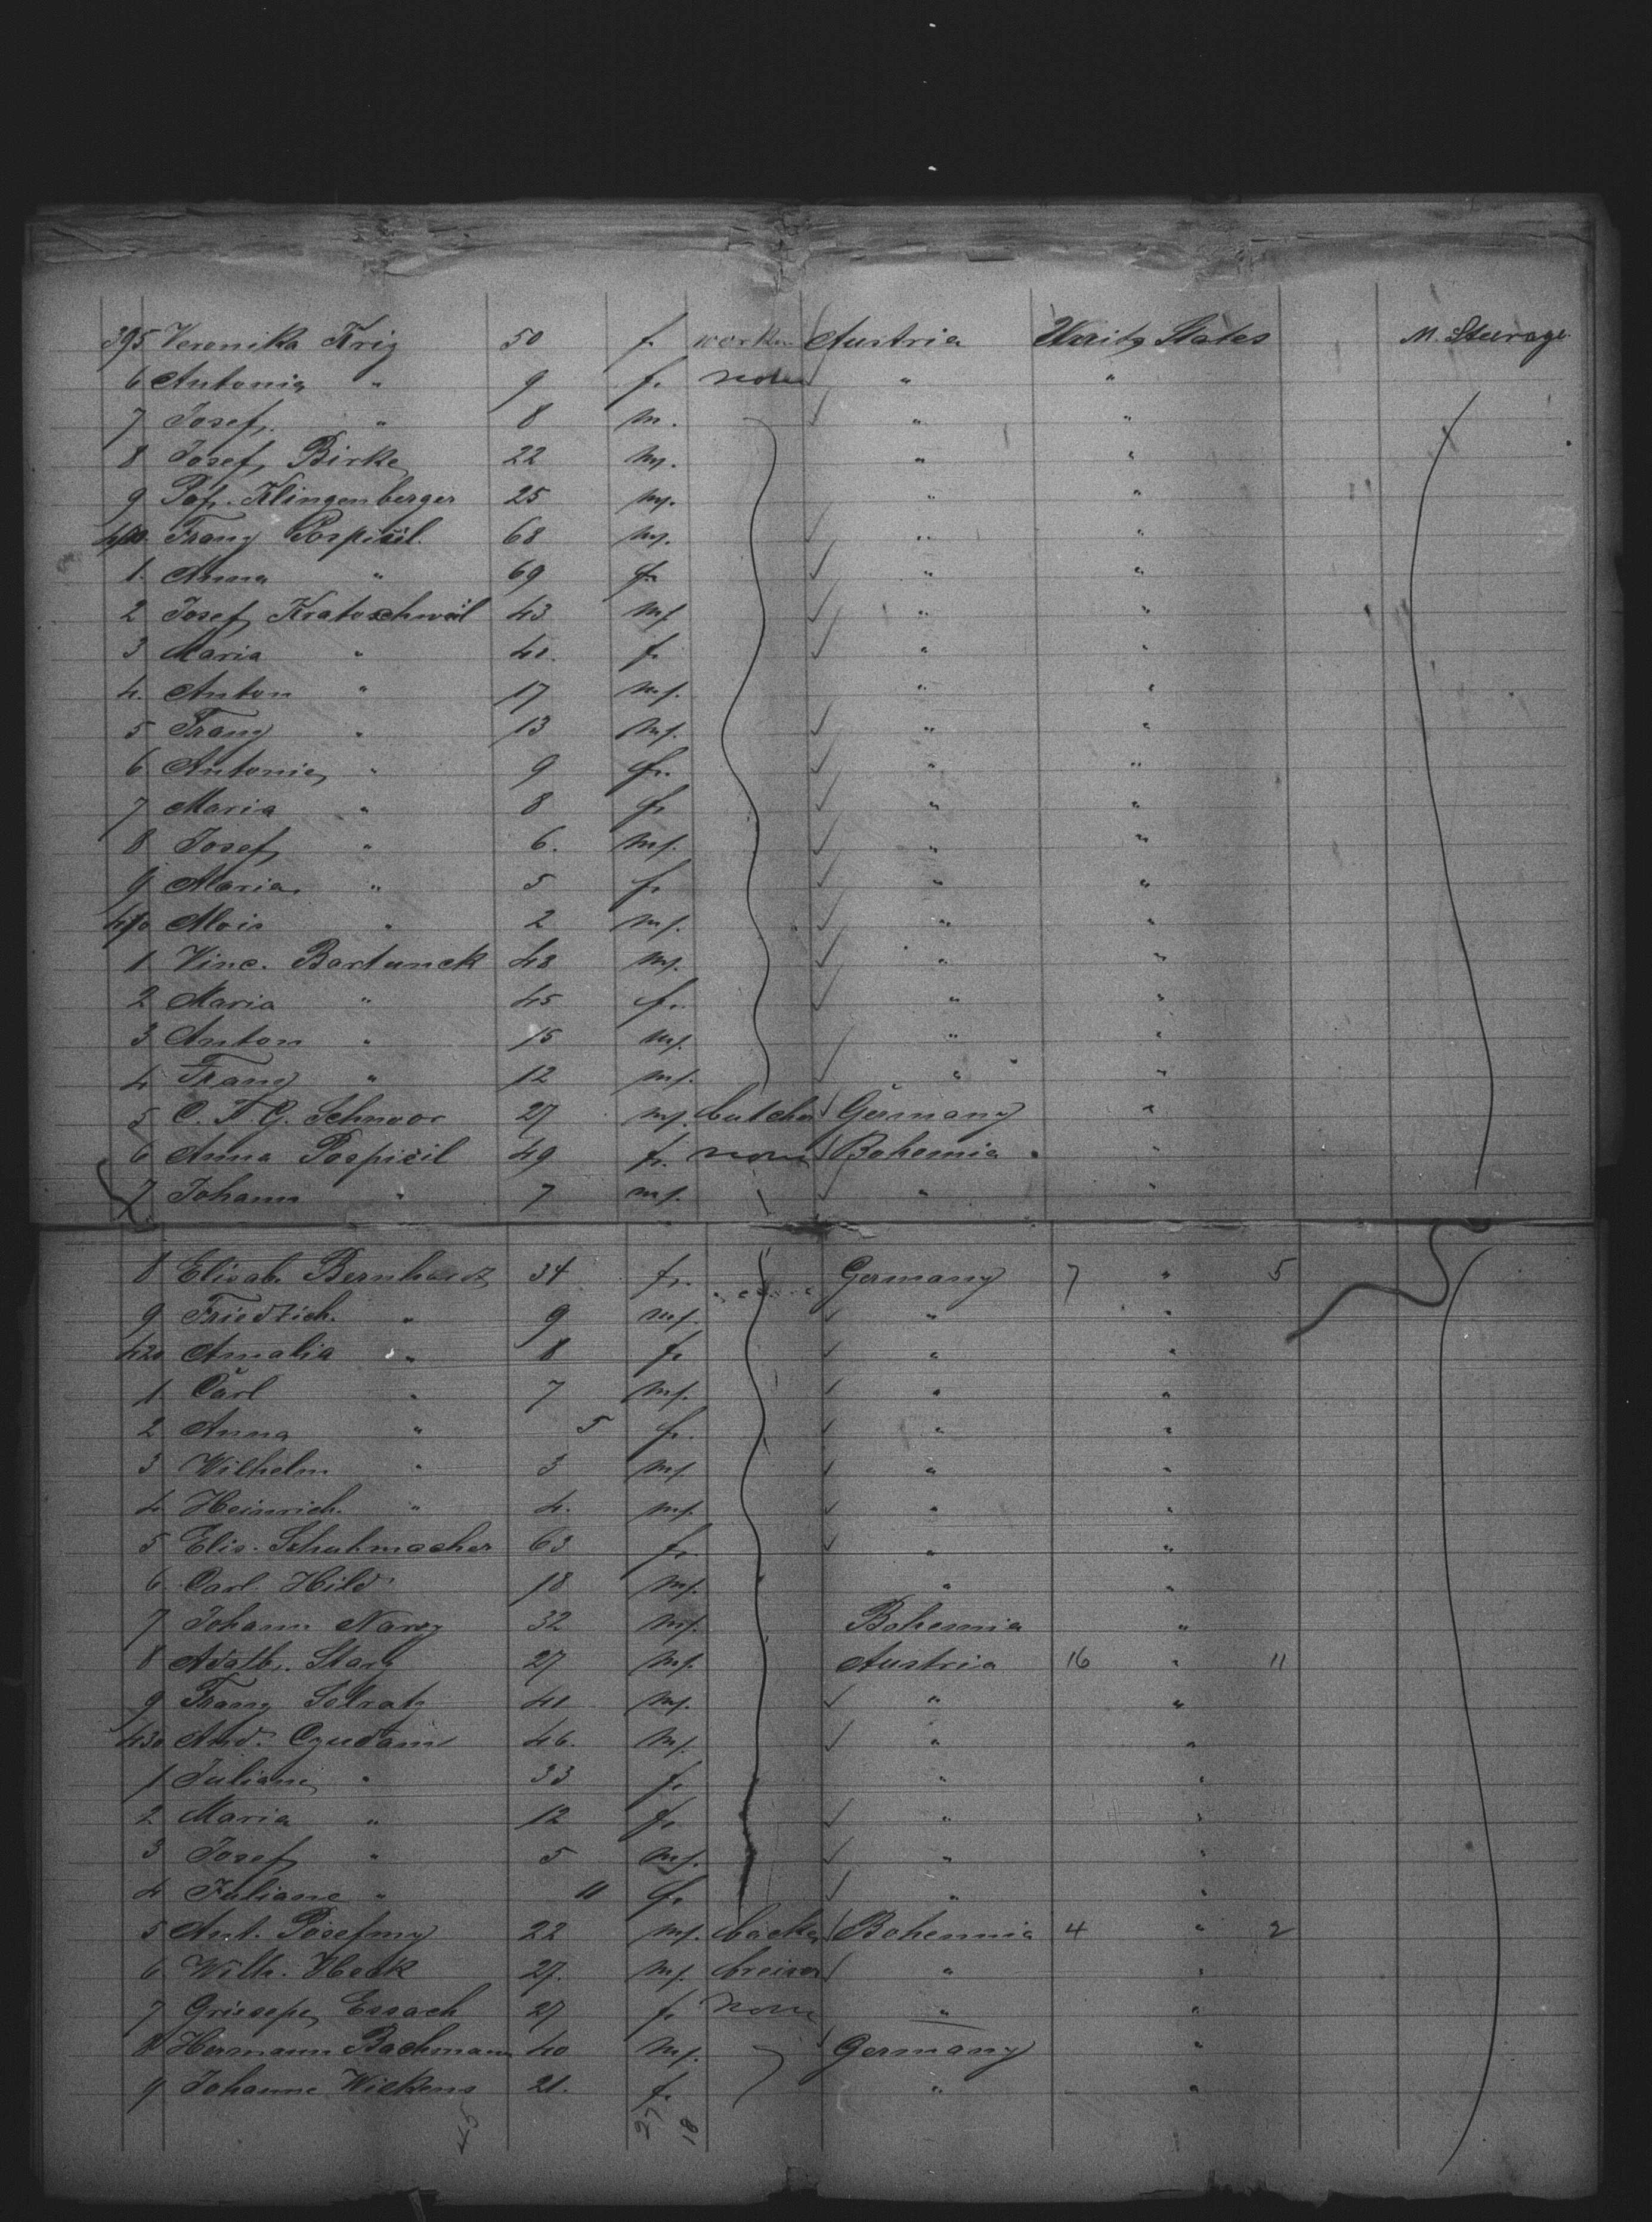 395 Veronika Krig 50 f. worker Austria Unitg States M. Steerage
6 Antonia " 9 f. none " "
7 Josef " 8 m. " "
8 Josef Birke 22 m. " "
9 Klingenberger 25 m. " "
400 Franz Pospisil 68 m. " "
1. Anna " 69 f. " "
2 Josef Kratoschwil 43 m. " "
3 Maria " 41. f. " "
4. Anton " 17 m. " "
5 Franz " 13 m. " "
6 Antonie " 9 f. " "
7 Maria " 8 f. " "
8 Josef " 6. m. " "
9 Maria " 5 f. " "
410 Alois " 2 m. " "
1 Vinc. Bartunek 48 m. " "
2 Maria " 45 f. " "
3 Anton " 15 m. " "
4 Franz " 12 m. " "
5 C. F. G. Schnoor 27 m. butcher Germany "
6 Anna Pospisil 49 f. none Bohemia "
7 Johann " 7 m. " "
8 Elisab. Bernhardt 34 f. Germany 7 " 5
9 Friedrich " 9 m. " "
420 Amalia " 8 f. " "
1 Carl " 7 m. " "
2 Anna " 5 f. " "
3 Wilhelm " 3 m. " "
4 Heinrich " 4. m. " "
5 Elis. Schuhmacher 63 f. " "
6 Carl Hild 18 m. " "
7 Johann 32 m. Bohemia "
8 Adalb. Stary 27 m. Austria 16 " 11
9 Franz 41 m. " "
430 And. 46. m. " "
1 Juliane " 33 f. " "
2 Maria " 12 f. " "
3 Josef " 5 m. " "
4 Juliane " 11 f. " "
5 Ant. 22 m. Bohemia 4 " 2
6 Wilh. Heck 27. m. " "
7 Essach 27 f. none " "
8 Hermann Bachmann 40 m. Germany "
9 Johanne Wilkens 21. f. " "
45 27 18